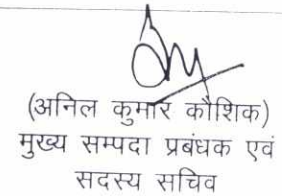 (अनिल कुमार कौशिक)
मुख्य सम्पदा प्रबंधक एवं
सदस्य सचिव